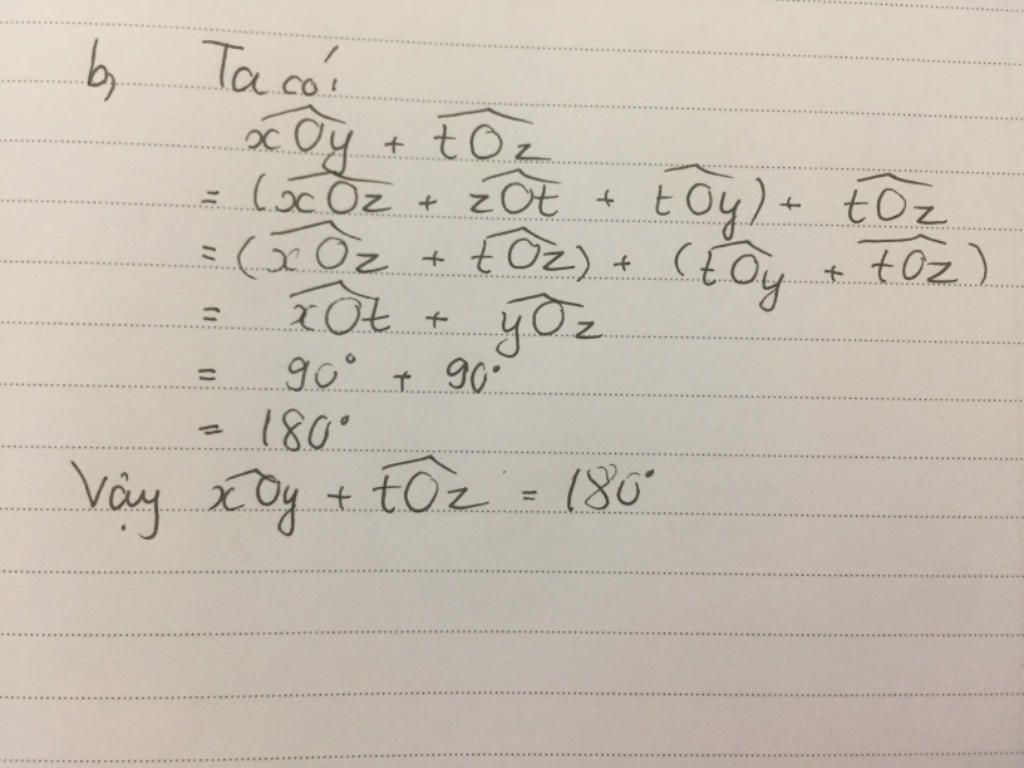 b, Ta có:
xOy + tOz
= (xOz + zOt + tOy) + tOz
= (xOz + tOz) + (tOy + tOz)
= xOt + yOz
= 90° + 90°
= 180°
Vậy xOy + tOz = 180°